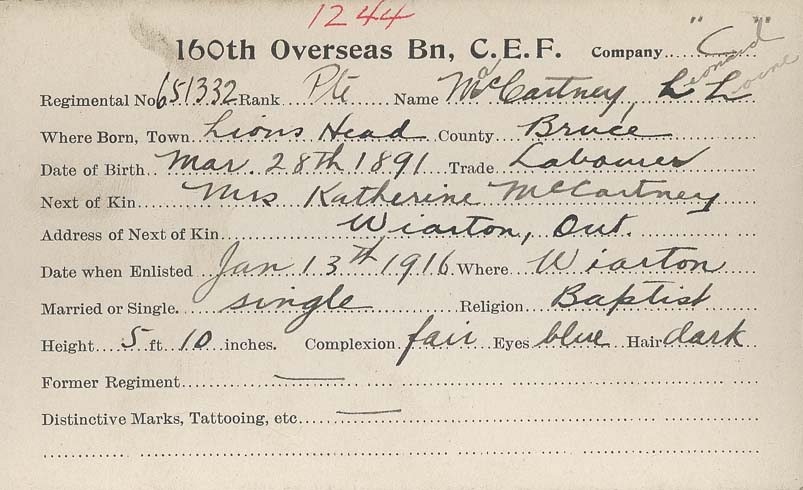 1244
160th Overseas Bn, C.E.F. Company "C"
Regimental No 651332 Rank Pte Name MacCartney, Leonard Lorne
Where Born, Town Lions Head County Bruce
Date of Birth Mar. 28th 1891 Trade Labourer
Next of Kin Mrs Katherine McCartney
Address of Next of Kin Wiarton, Ont.
Date when Enlisted Jan 13th, 1916 Where Wiarton
Married or Single. single Religion Baptist
Height 5 ft 10 inches. Complexion fair Eyes blue Hair dark
Former Regiment —
Distinctive Marks, Tattooing, etc —